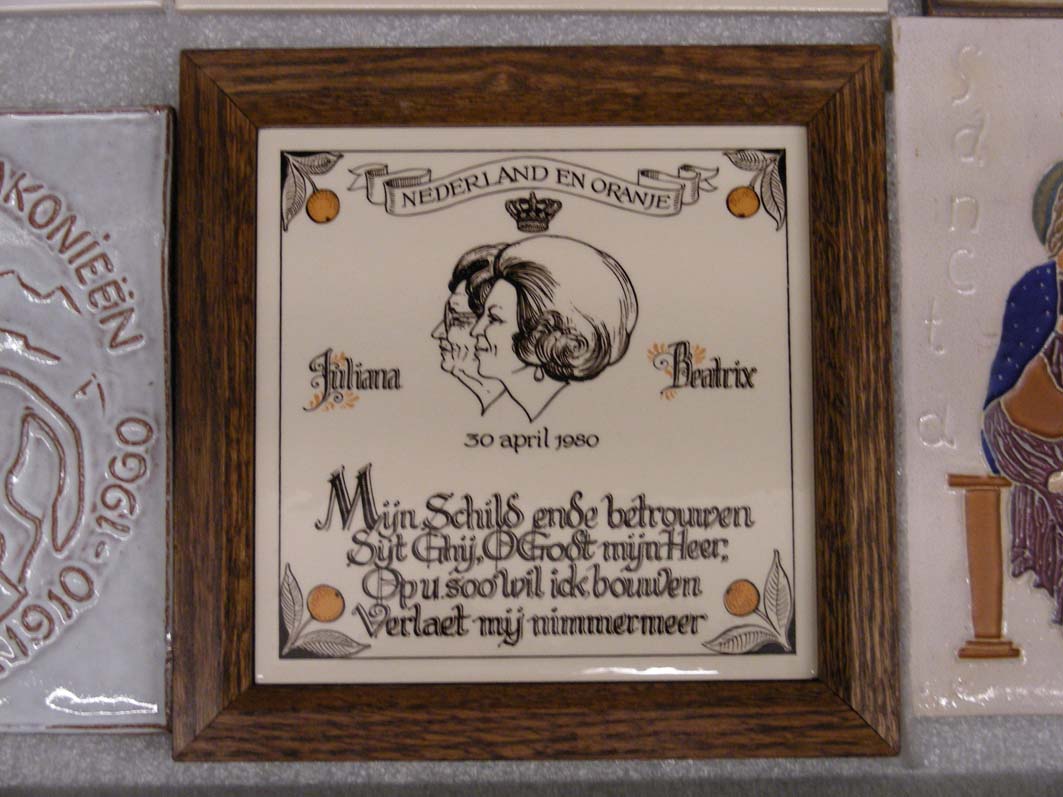 NEDERLAND EN ORANJE
Juliana
Beatrix
30 april 1980
Mijn Schild ende betrouwen
Sijt Ghij, O Godt mijn Heer;
Op u soo wil ick bouwen
Verlaet mij nimmermeer
AKONIEËN
1910-1960
sanct
d